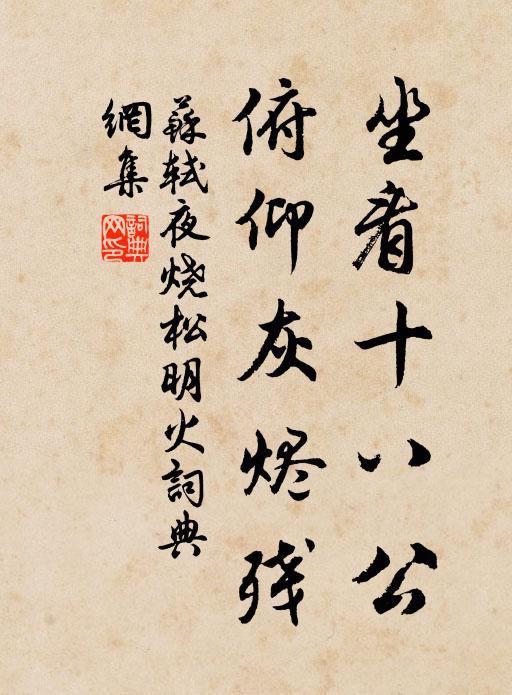 坐看十八公
俯仰灰烬残
蘇轼夜烧松明火詞典
網集
詞典
网印